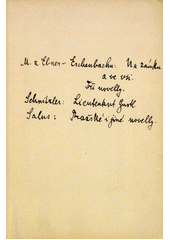 M. z Ebner-Eschenbachu: Na zámku
a ve vsi.
Tři novelly.
Schnitzler: Lieutentant Gustl
Salus: Pražské i jiné novelly.